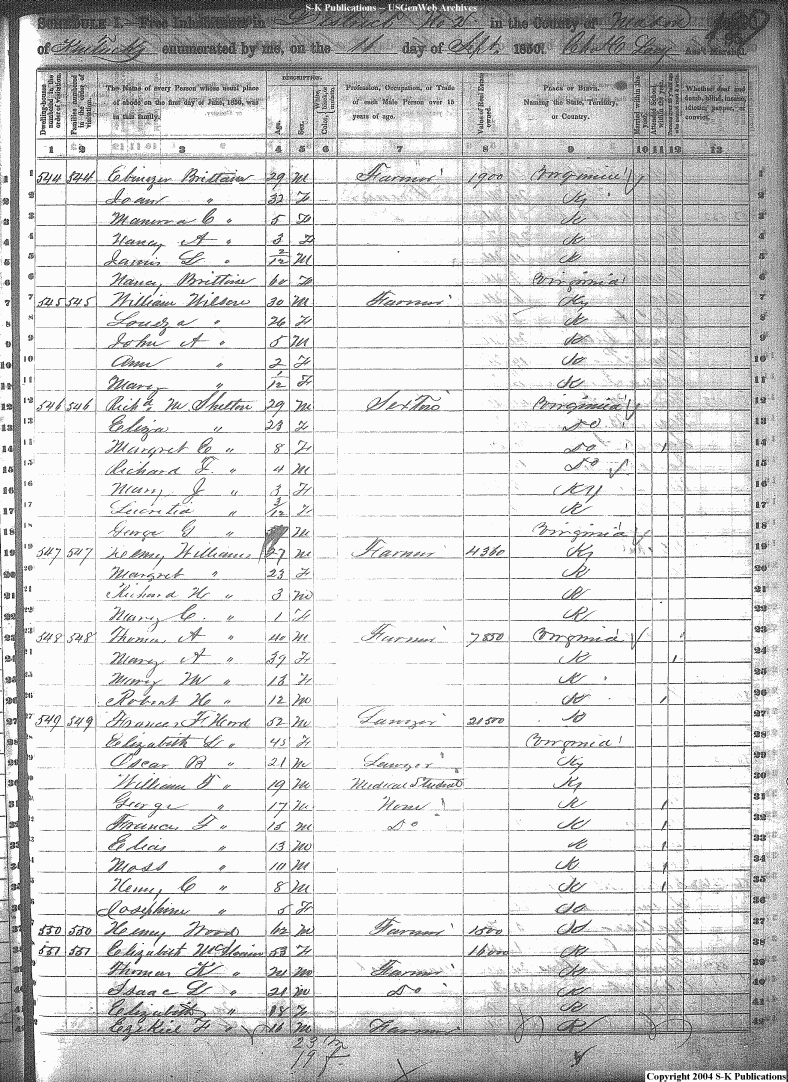 S-K Publications – USGenWeb Archives
SCHEDULE I.—Free Inhabitants in District No 2 in the County of Mason
of Kentucky enumerated by me, on the day of Sept 1850.
DESCRIPTION.
Dwelling-houses numbered in the order of visitation.
Families numbered in the order of visitation.
The Name of every Person whose usual place of abode on the first day of June, 1850, was in this family.
Age.
Sex.
Profession, Occupation, or Trade of each Male Person over 15 years of age.
Value of Real Estate owned.
PLACE OF BIRTH. Naming the State, Territory, or Country.
Married within the year.
Whether deaf and dumb, blind, insane, idiotic, pauper, or convict.
1 2 3 4 5 6 7 8 9 10 11 12 13
1 544 544 Ebinezer Brittain 29 M Farmer 1900 Virginia
2 Joan " 32 F Ky
3 C " 5 F K
4 Nancy A " 3 F K
5 James L " 2/12 M K
6 Nancy Brittine 60 F Virginia
7 545 545 William Wilson 30 M Farmer Ky
8 Louiza " 26 F K
9 John A " 5 M K
10 Ann " 2 F K
11 Mary " 1/12 F K
12 546 546 Richd M Shelton 29 M Sexton Virginia
13 Eliza " 23 F Do
14 Margret C " 8 F Do 1
15 Richard F. " 4 M Do
16 Mary J " 3 F Ky
17 Lucretia " 3/12 F K
18 George G " M Virginia
19 547 547 Henry Williams 27 M Farmer 4360 Ky
20 Margret " 23 F K
21 Richard H " 3 M K
22 Mary C. " 1 F K
23 548 548 Thomas A " 40 M Farmer Virginia
24 Mary A " 39 F K 1
25 Mary M " 13 F K
26 Robert H " 12 M K 1
27 549 549 Francis F Hord 52 M Lawyer 21500 K
28 Elizabeth L " 45 F Virginia
29 Oscar B " 21 M Lawyer Ky
30 William T " 19 M Medical Student Ky
31 George " 17 M None K 1
32 Francis F " 15 M Do K 1
33 Elias " 13 M K 1
34 Moss " 10 M K 1
35 Henry C " 8 M K 1
36 Josephine " 5 F K
37 550 550 Henry Wood 62 M Farmer 1500 K
38 551 551 Elizabeth 53 F 16000 K
39 Thomas K " 24 M Farmer K
40 Isaac L " 21 M Do K
41 Elizabeth " 18 F K
42 Ezekiel F " 16 M Farmer K
23 m
19 f
Copyright 2004 S-K Publications